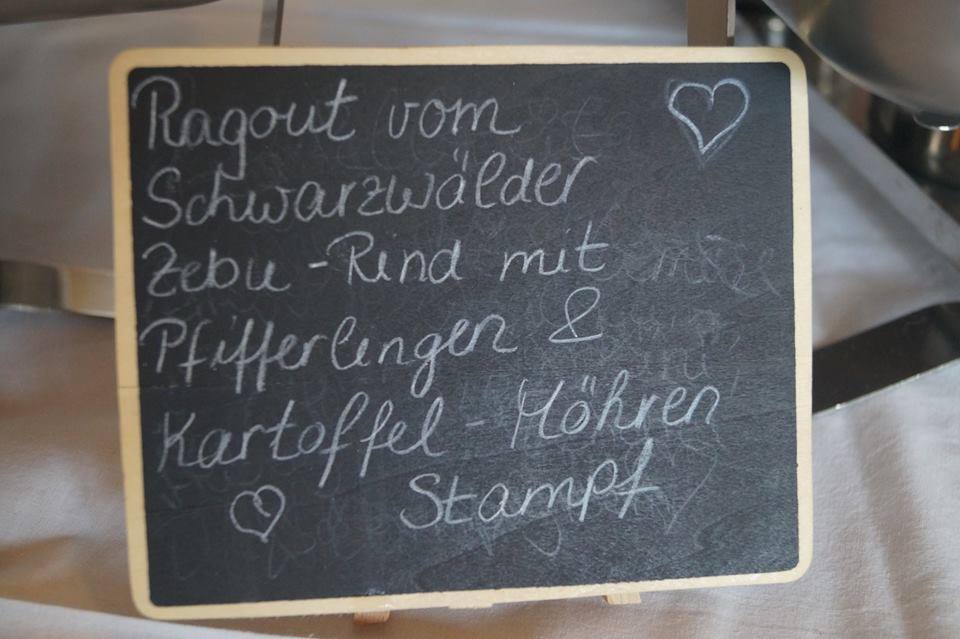 Ragout vom
Schwarzwälder
Zebu - Rind mit
Pfifferlingen &
Kartoffel - Möhren
Stampf